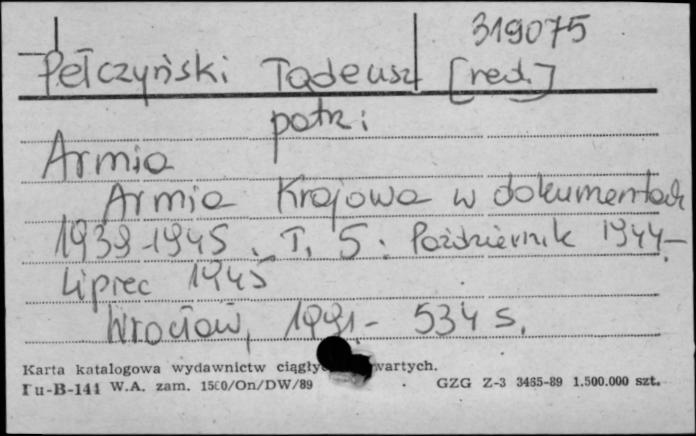 319075
Pełczyński Tadeusz [red.]
patrz:
Armia
Armia Krajowa w dokumentach
1939-1945. T. 5: Październik 1944-
Lipiec 1945
Wrocław, 1991.- 534 s.
Karta katalogowa wydawnictw
W.A. zam. 1500/On/DW/89 GZG Z-3 3465-89 1.500.000 szt.